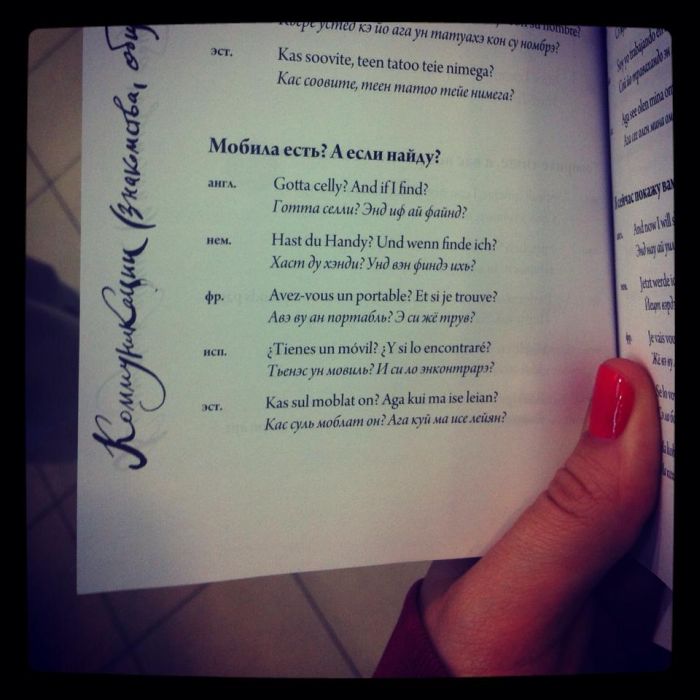 Коммуникации (знакомства, общ
эст. Kas soovite, teen tatoo teie nimega?
Кас соовите, теен татоо тейе нимега?
Мобила есть? А если найду?
англ. Gotta celly? And if I find?
Готта селли? Энд иф ай файнд?
нем. Hast du Handy? Und wenn finde ich?
Хаст ду хэнди? Унд вэн финдэ ихь?
фр. Avez-vous un portable? Et si je trouve?
Авэ ву ан портабль? Э си жё трув?
исп. ¿Tienes un móvil? ¿Y si lo encontraré?
Тьенэс ун мовиль? И си ло энконтрарэ?
эст. Kas sul moblat on? Aga kui ma ise leian?
Кас суль моблат он? Ага куй ма исе лейян?
Soy yo trabajando en
Aga see olen mina om
сейчас покажу вам
And now I will s
Jetzt werde ic
Je vais vou